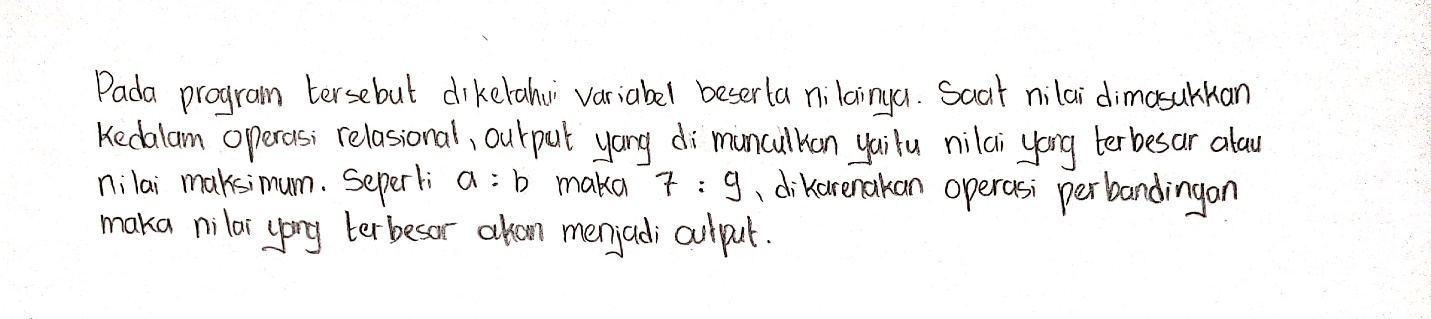 Pada program tersebut diketahui variabel beserta nilainya. Saat nilai dimasukkan
kedalam operasi relasional, output yang di munculkan yaitu nilai yang terbesar atau
nilai maksimum. Seperti a : b maka 7 : 9, dikarenakan operasi perbandingan
maka nilai yang terbesar akan menjadi output.